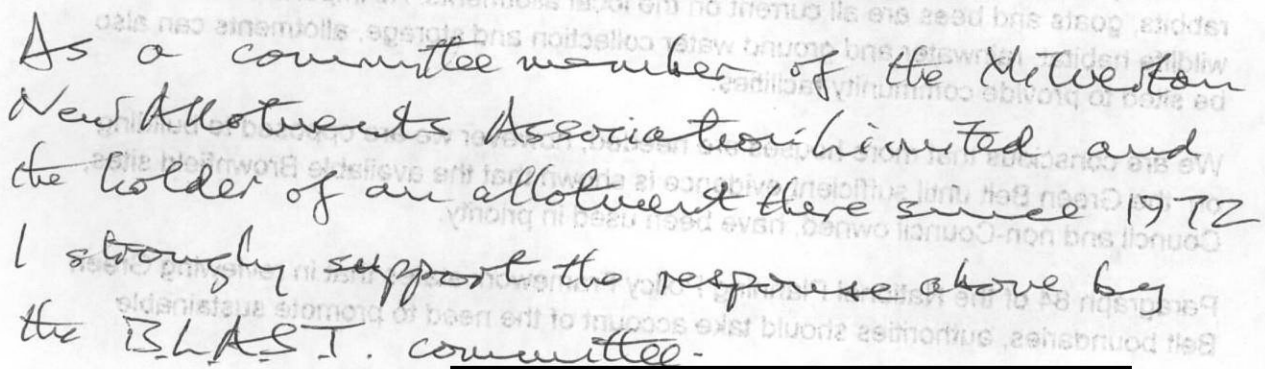 As a committee member of the Milverton
New Allotments Association Limited and
the holder of an allotment there since 1972
I strongly support the response above by
the B.L.A.S.T. committee.